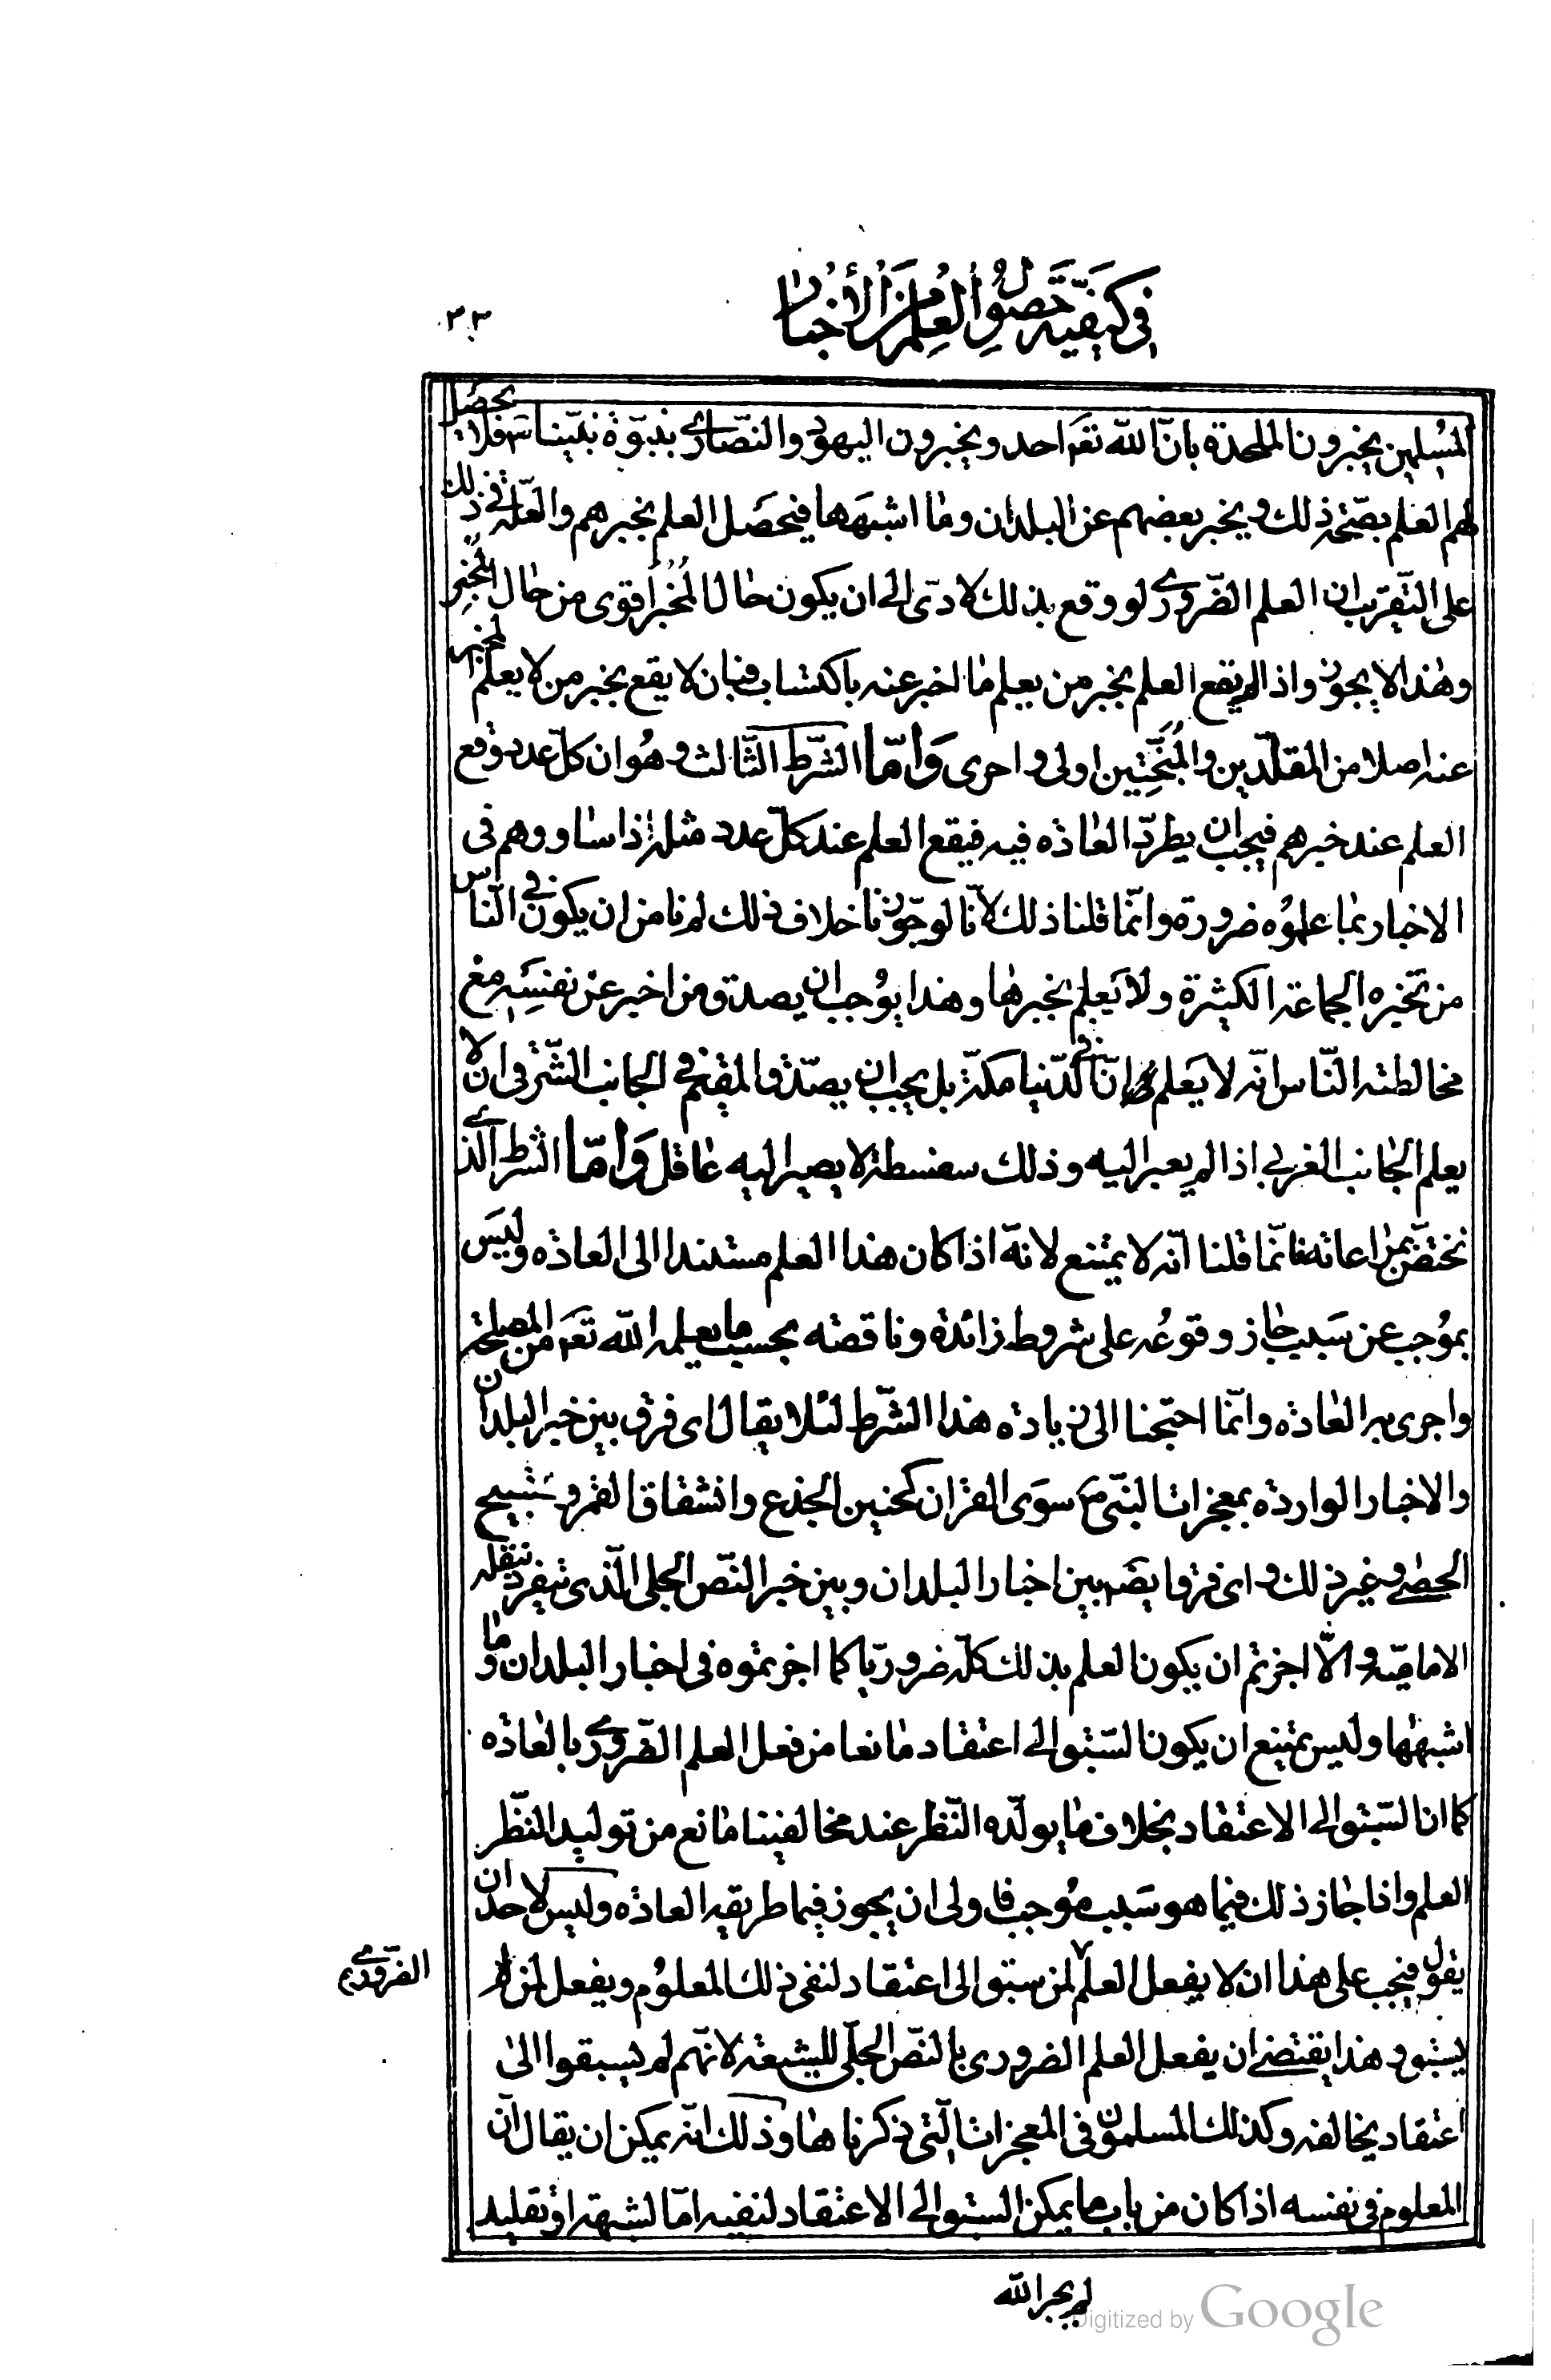 في كيفية حصول العلم من الأخبار
٣٣
المسلمين يخبرون الملحدة بانّ الله تعم احد ويخبرون اليهود والنصارى بنبوّة نبيّنا ص فلا يحصل
لهم العلم بصحّة ذلك ويخبر بعضهم عن البلدان وما اشبهها فيحصل العلم بخبرهم والعلّة في ذلك
على التّقريب ان العلم الضّروري لو وقع بذلك لادّى الى ان يكون حال المُخبَر اقوى من حال المُخبِر
وهذا لا يجوز واذا لم يقع العلم بخبر من يعلم ما اخبر عنه باكتساب فبان لا يقع بخبر من لا يعلم المخبر
عنه اصلا من المقلّدين والمُبَخِّتين اولى واحرى وَامّا الشّرط الثّالث وهُو ان كلّ عدد وقع
العلم عند خبرهم فيجب ان يطرد العادة فيه فيقع العلم عند كلّ عدد مثله اذا ساووهم فى
الاخبار بما علموُه ضرورة وانّما قلنا ذلك لانّا لو جوّزنا خلاف ذلك لم نامن ان يكون في النّاس
من تخبره الجماعة الكثيرة ولا يَعلم بخبرها وهذا يوُجب ان يصدق من اخبر عن نفسِه مع
مخالطته النّاس انّه لا يَعلم انّ في الدّنيا مكّة بل يجب ان يصدّق المقيم في الجانب الشّرقى ان لا
يعلم الجانب الغربي اذا لم يعبر اليه وذلك سفسطة لا يصير اليه عاقل وَامّا الشرط الّذي
نختصّ بمراعاته فانّما قلنا انّه لا يمتنع لانّه اذا كان هذا العلم مستندا الى العادة وليسَ
بموُجب عن سَبب جاز وقوعُه على شروط زائدة وناقصة بحسب ما يعلمه الله تعم من المصلحة
واجرى به العادة وانّما احتجنا الى زيادة هذا الشّرط لئلا يقال اى فرق بين خبر البلدان
والاخبار الواردة بمعجزات النّبى ص سوَى القران كحنين الجذع وانشقاق القمر وتسبيح
الحصى وغير ذلك واى فرق ايضَا بين اخبار البلدان وبين خبر النّص الجلى الّذى تنفرد بنقله
الاماميّة والّا اجزتم ان يكون العلم بذلك كلّه ضروريّا كما اجزتموه فى اخبار البلدان وما
اشبهها وليس بممتنع ان يكون السّبق الى اعتقاد مانعا من فعل العلم الضّروري بالعادة
كما ان السّبق الى الاعتقاد بخلاف ما يولّده النّظر عند مخالفينا مانع من توليد النّظر
العلم واذا جاز ذلك فيما هو سَبب موُجب فاولى ان يجوز فيما طريقه العادة وليس لاحد ان
يقول فيجب على هذا ان لا يفعل العلم لمن سبق الى اعتقاد لنفى ذلك المعلوُم ويفعل لمن لم
الضّروري
يسبق وهذا يقتضى ان يفعل العلم الضرورى بالنّص الجلّى للشيعة لانّهم لم يسبقوا الى
اعتقاد يخالفه وكذلك المسلمون فى المعجزات الّتى ذكرناها وذلك انّه يمكن ان يقال انّ
المعلوم فى نفسه اذا كان من باب ما يمكن السبق الى الاعتقاد لنفيه امّا لشبهة او تقليد
لم يجر الله
Digitized by Google